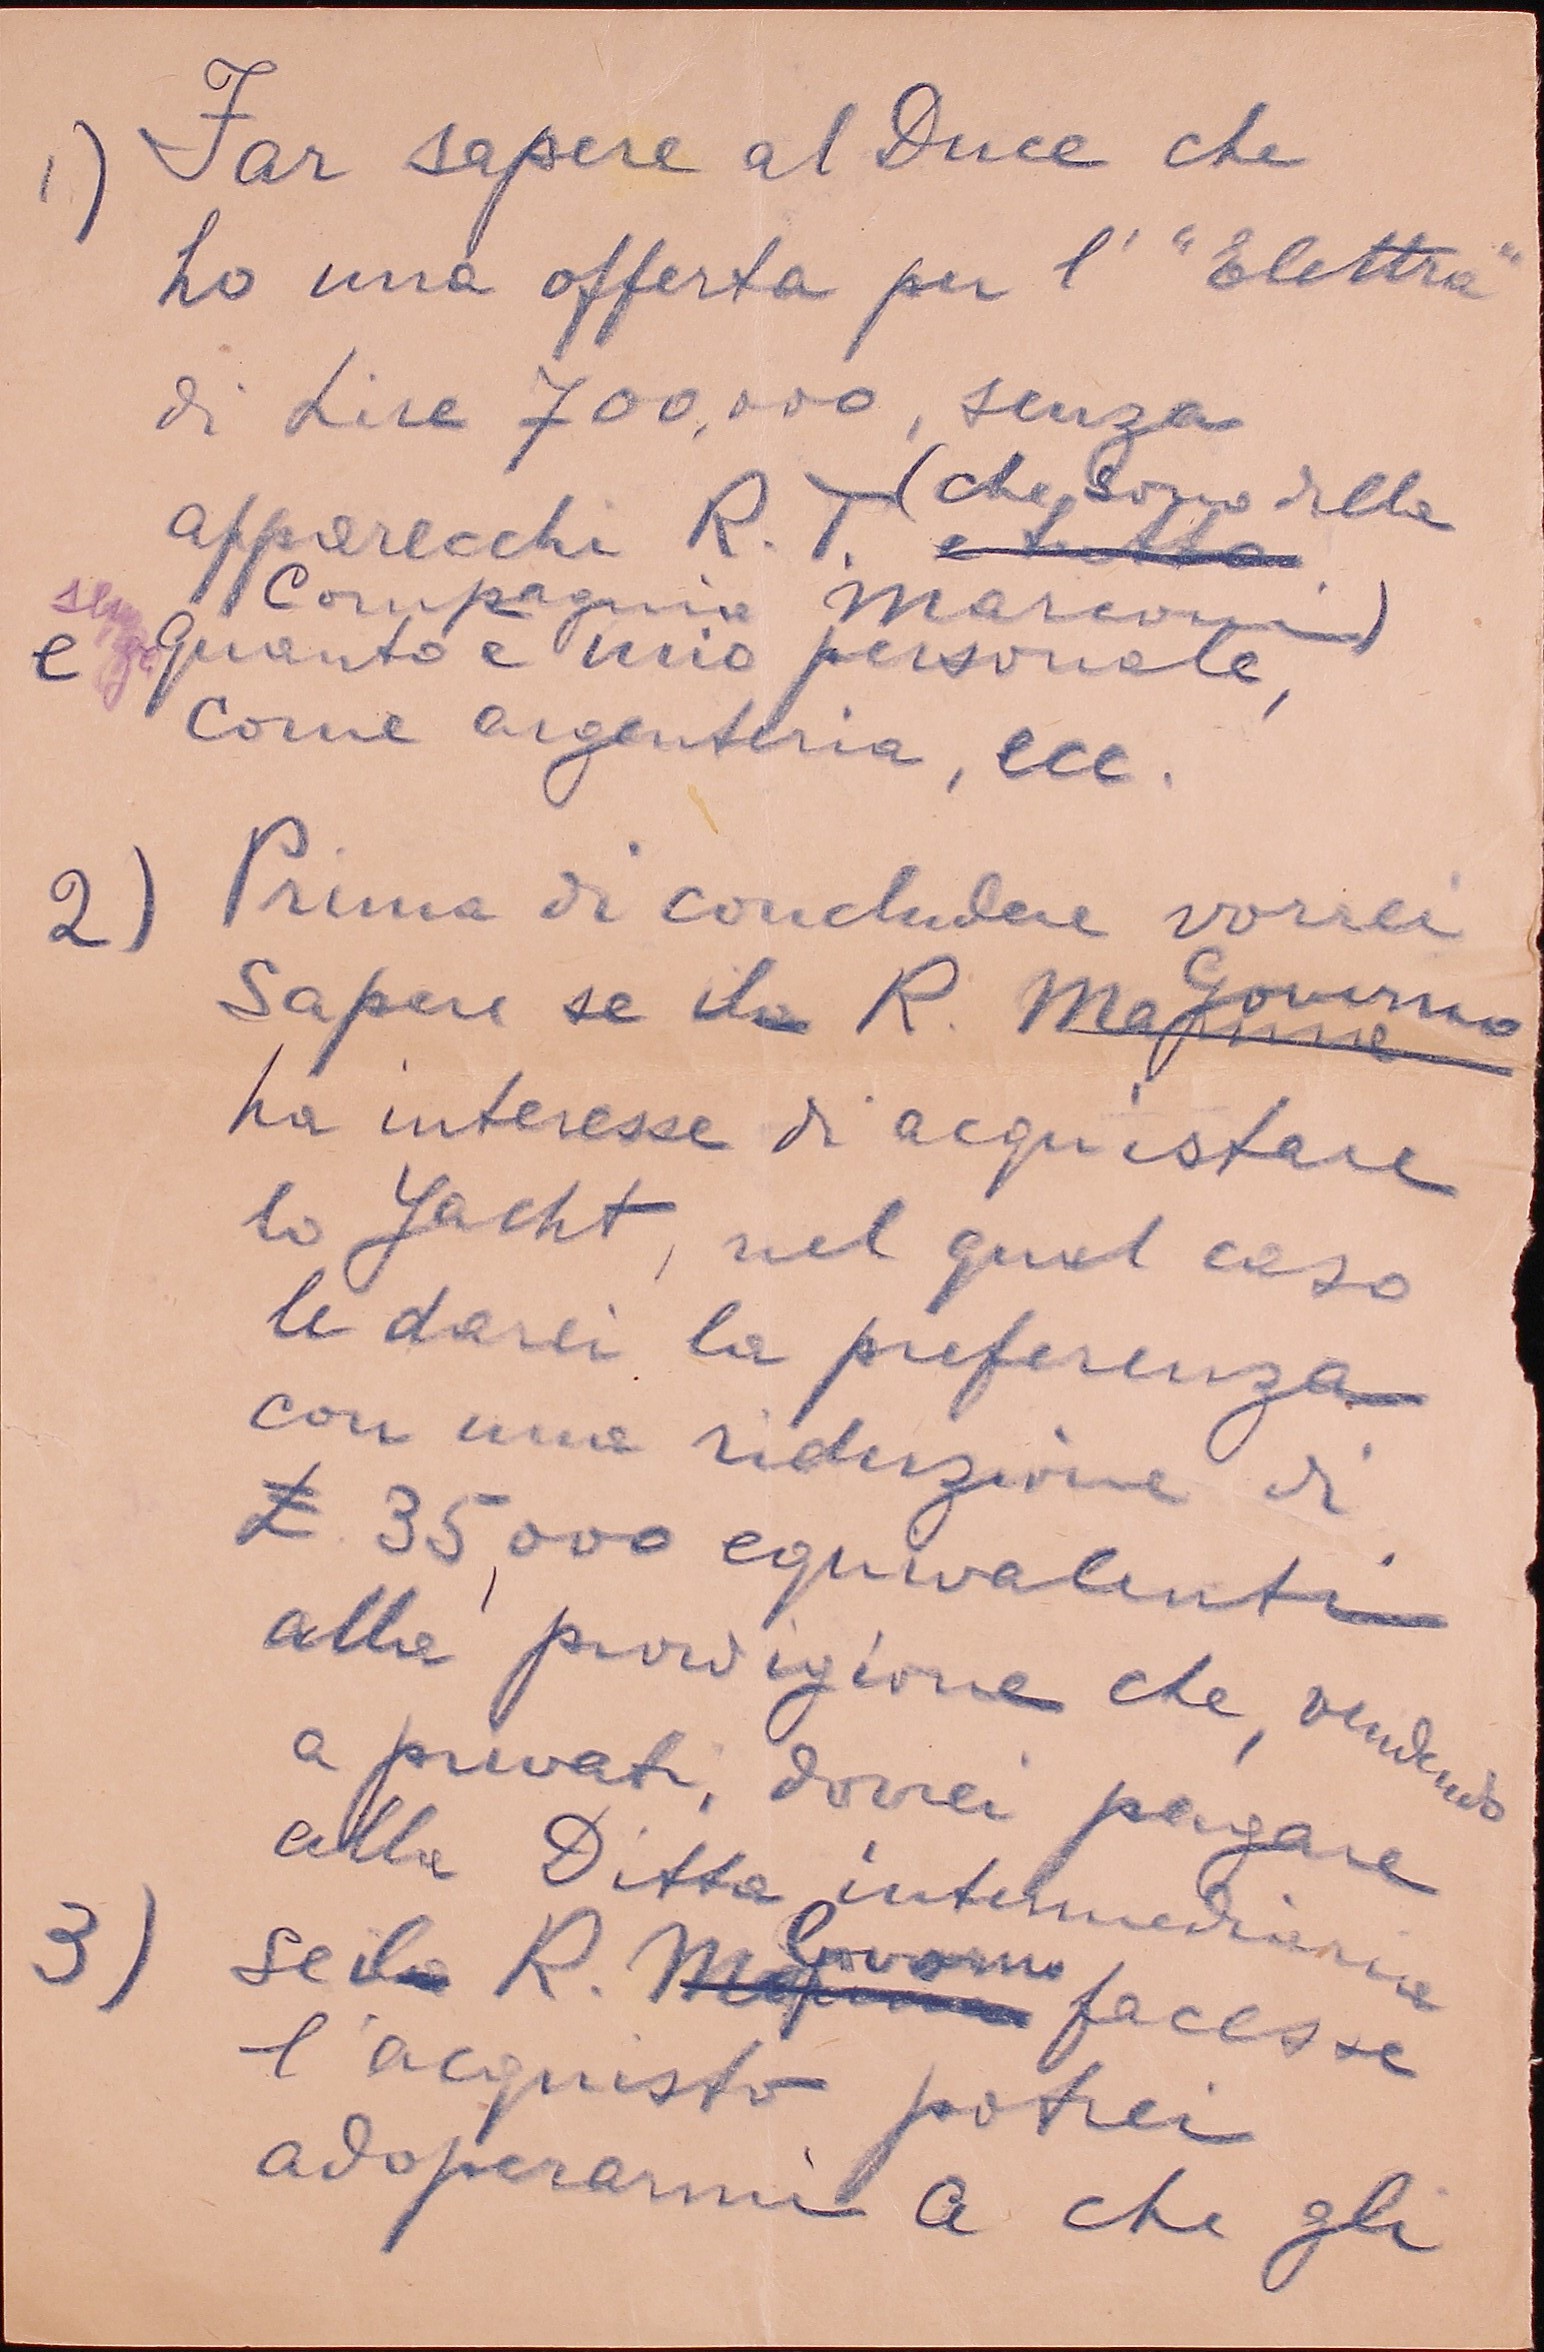 1) Far sapere al Duce che
ho una offerta per l' "Elettra"
di Lire 700,000, senza
(che sono della
apparecchi R. T. e tutto
Compagnia Marconi)
senza
e quanto è mio personale,
come argenteria, ecc.
2) Prima di concludere vorrei
Sapere se il la R. Marina Governo
ha interesse di acquistare
lo Yacht, nel qual caso
le darei la preferenza
con una riduzione di
₤. 35,000 equivalenti
alla provvigione che, vendendo
a privati, dovrei pagare
alla Ditta intermediaria
3) Se il la R. Marina Governo facesse
l'acquisto potrei
adoperarmi a che gli